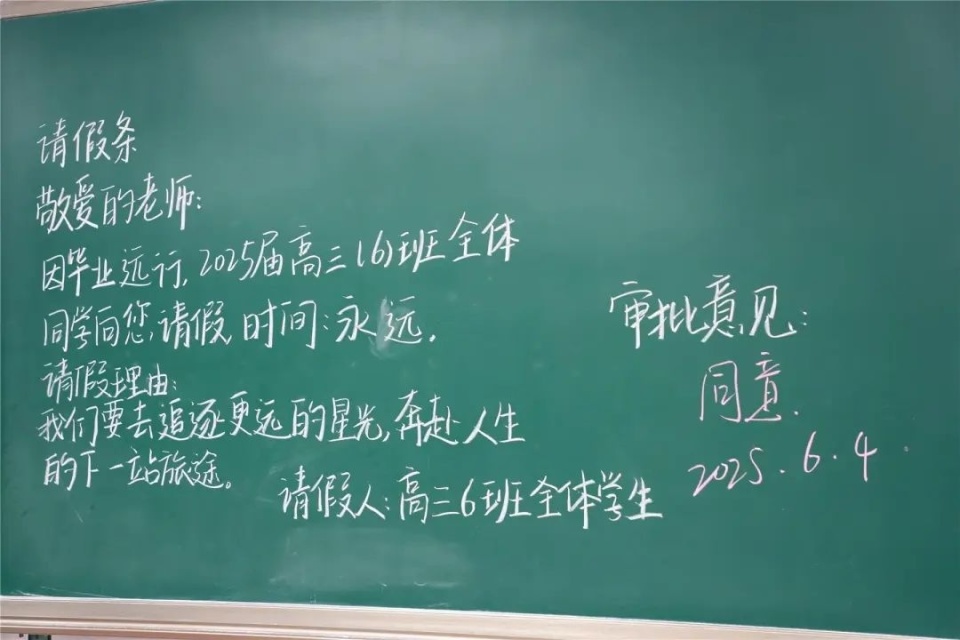 请假条
敬爱的老师:
因毕业远行,2025届高三(6)班全体
同学向您请假,时间:永远.
请假理由:
我们要去追逐更远的星光,奔赴人生
的下一站旅途。
请假人:高三6班全体学生
审批意见:
同意.
2025.6.4.